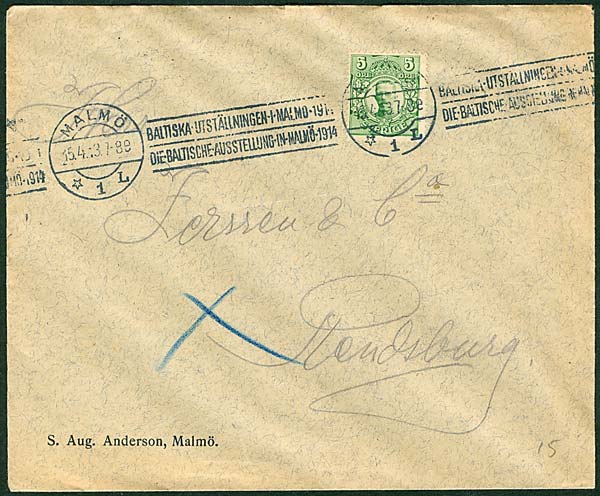 MALMÖ
15.4.13.7-8E
☆ 1 L
BALTISKA·UTSTÄLLNINGEN·I·MALMÖ·1914
DIE·BALTISCHE·AUSSTELLUNG·IN·MALMÖ·1914
MÖ·1914
5 5
1 L
BALTISKA·UTSTÄLLNINGEN·I·MALMÖ
DIE·BALTISCHE·AUSSTELLUNG·IN·MALM
Jerssen & Co
Rendsburg
S. Aug. Anderson, Malmö.
15